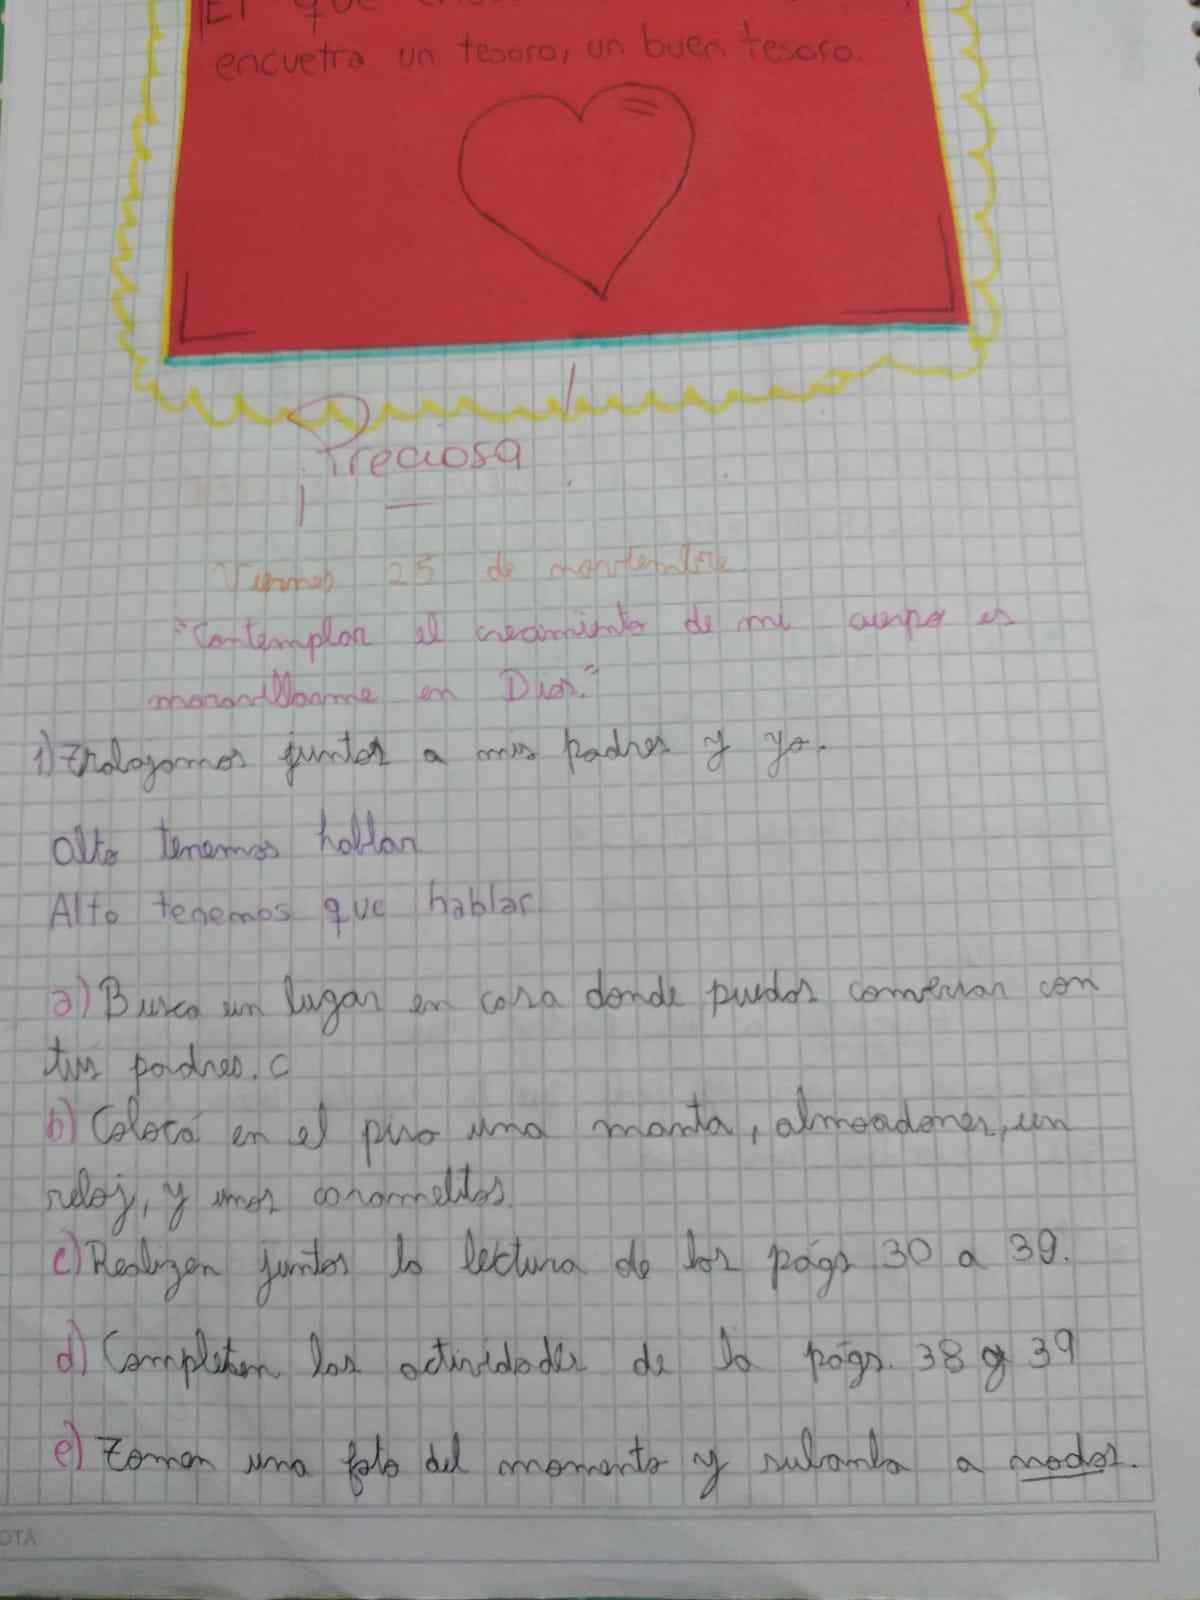 El que
encuetra un tesoro, un buen tesoro.
Preciosa
Viernes 25 de
"Contemplar el crecimiento de mi cuerpo es
maravillarme en Dios."
1) Trabajamos juntos a mis padres y yo.
Alto tenemos hablar
Alto tenemos que hablar
a) Busca un lugar en casa donde puedas conversar con
tus padres. C
b) Colocá en el piso una manta, almoadones, un
reloj, y unos caramelitos.
c) Realizen juntos la lectura de las págs 30 a 39.
d) Completen las actividades de la págs. 38 y 39
e) Toman una foto del momento y subanla a nodos.
OTA